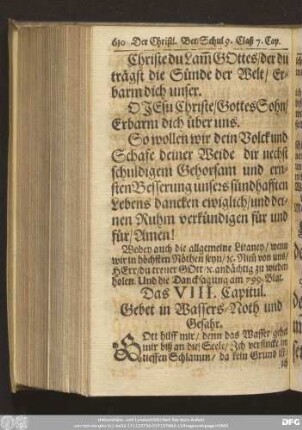 630 Der Christl. Bet-Schul 9. Claß 7. Cap.
Christe du Lam̃ GOttes/der du
trägst die Sünde der Welt/ Er-
barm dich unser.
O JEsu Christe/ Gottes Sohn/
Erbarm dich über uns.
So wollen wir dein Volck und
Schafe deiner Weide dir nechst
schuldigem Gehorsam und ern-
sten Besserung unsers sündhafften
Lebens dancken ewiglich/und dei-
nen Ruhm verkündigen für und
für/Amen!
Wobey auch die allgemeine Litaney/ wenn
wir in höchsten Nöthen seyn/ ꝛc. Nim von uns/
HErr/du treuer GOtt/ ꝛc. andächtig zu wieder-
holen. Und die Dancksagung am 799. Blat.
Das VIII. Capitul.
Gebet in Wassers-Noth und
Gefahr.
GOtt hilff mir/ denn das Wasser gehet
mir biß an die Seele/ Jch versincke in
tieffen Schlamm/ da kein Grund ist/
ich
DFG